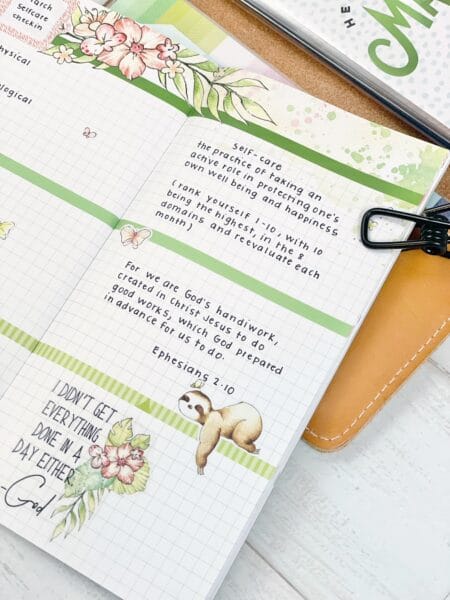 March
Selfcare
checkin
Physical
ological
HE
MA
Self-care
the practice of taking an
active role in protecting one's
own well being and happiness
(rank yourself 1-10, with 10
being the highest, in the 8
domains and reevaluate each
month)
For we are God's handiwork,
created in Christ Jesus to do
good works, which God prepared
in advance for us to do.
Ephesians 2:10
I DIDN'T GET
EVERYTHING
DONE IN A
DAY EITHER
-God